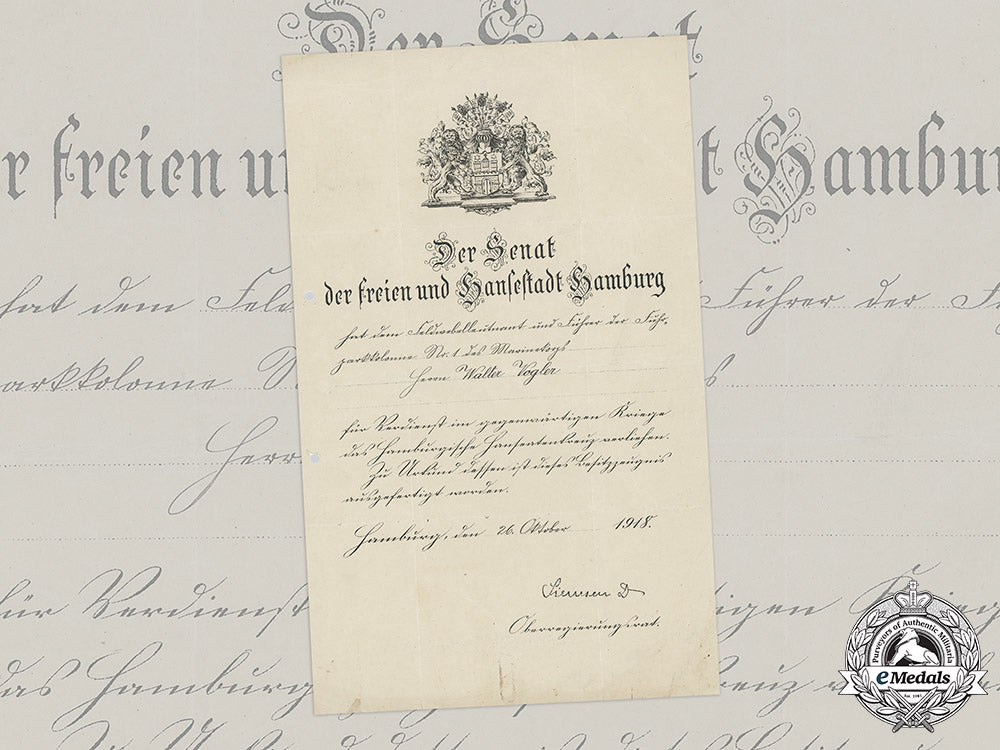 Der Senat
der freien und Hansestadt Hamburg
hat dem Feldwebelleutnant und Führer der Fuhr-
parkkolonne No. 1 des Marinekorps
Herrn Walter Vogler
für Verdienst im gegenwärtigen Kriege
das Hamburgische Hanseatenkreuz verliehen.
Zu Urkund dessen ist dieses Besitzzeugnis
ausgefertigt worden.
Hamburg, den 26. Oktober 1918.
Oberregierungsrat.
Purveyors of Authentic Militaria
eMedals